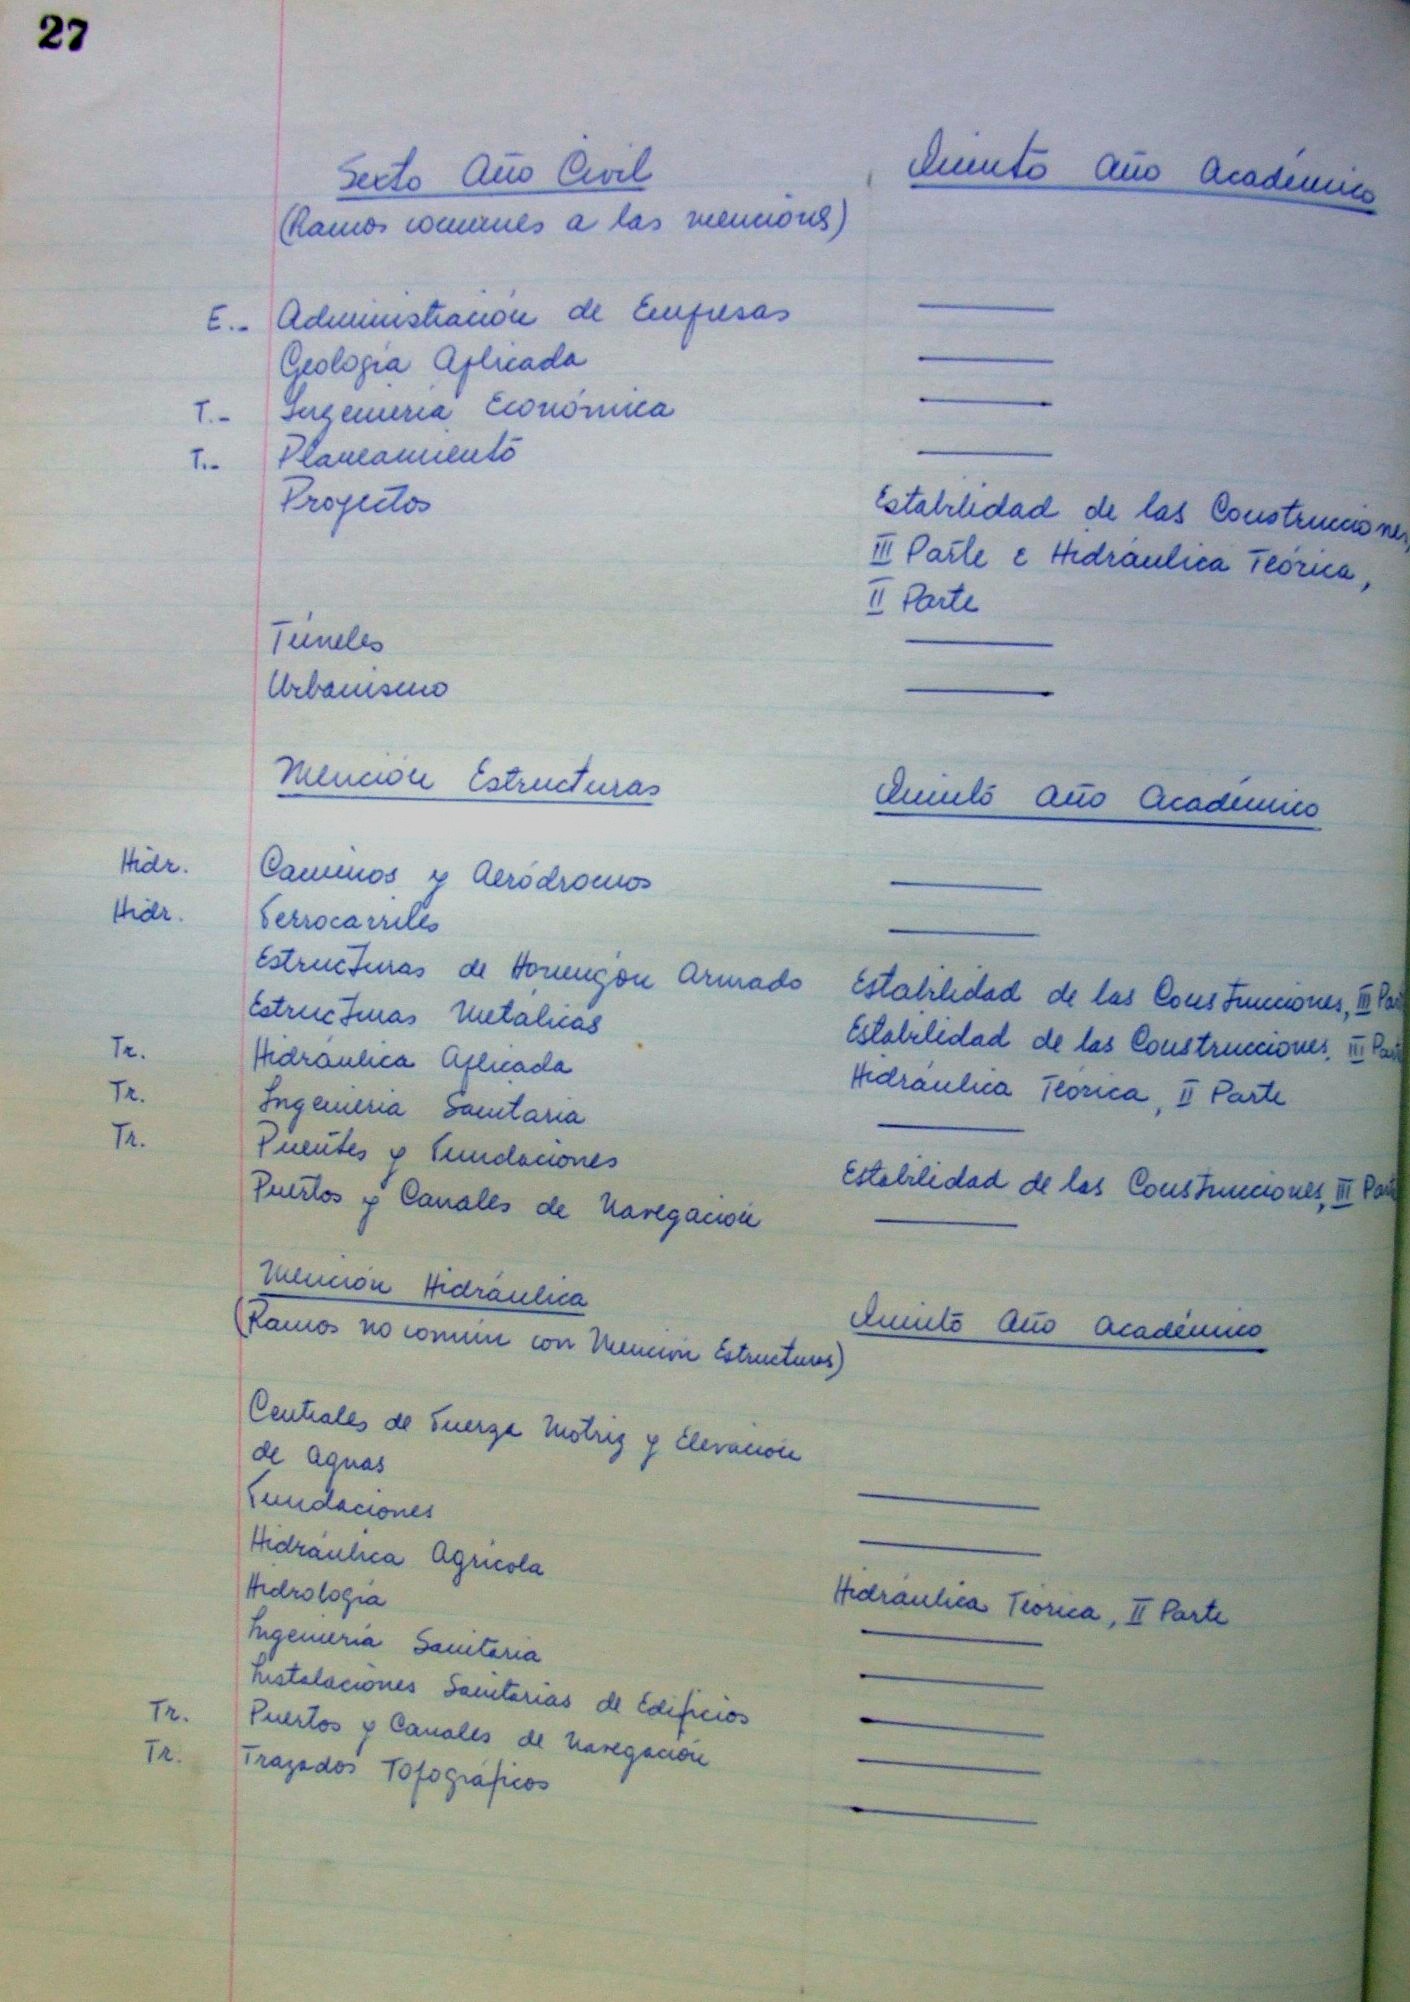 27
Sexto Año Civil
Quinto Año Académico
(Ramos comunes a las menciones)
E.- Administración de Empresas
Geología Aplicada
T.- Ingeniería Económica
T.- Planeamiento
Proyectos
Estabilidad de las Construcciones,
III Parte e Hidráulica Teórica,
II Parte
Túneles
Urbanismo
Mención Estructuras
Quinto Año Académico
Hidr. Caminos y Aeródromos
Hidr. Ferrocarriles
Estructuras de Hormigón Armado Estabilidad de las Construcciones, III Par
Estructuras Metálicas Estabilidad de las Construcciones, III Par
Tr. Hidráulica Aplicada Hidráulica Teórica, II Parte
Tr. Ingeniería Sanitaria
Tr. Puentes y Fundaciones Estabilidad de las Construcciones, III Par
Puertos y Canales de Navegación
Mención Hidráulica
Quinto Año Académico
(Ramos no común con Mención Estructuras)
Centrales de Fuerza Motriz y Elevación
de Aguas
Fundaciones
Hidráulica Agrícola Hidráulica Teórica, II Parte
Hidrología
Ingeniería Sanitaria
Instalaciones Sanitarias de Edificios
Tr. Puertos y Canales de Navegación
Tr. Trazados Topográficos